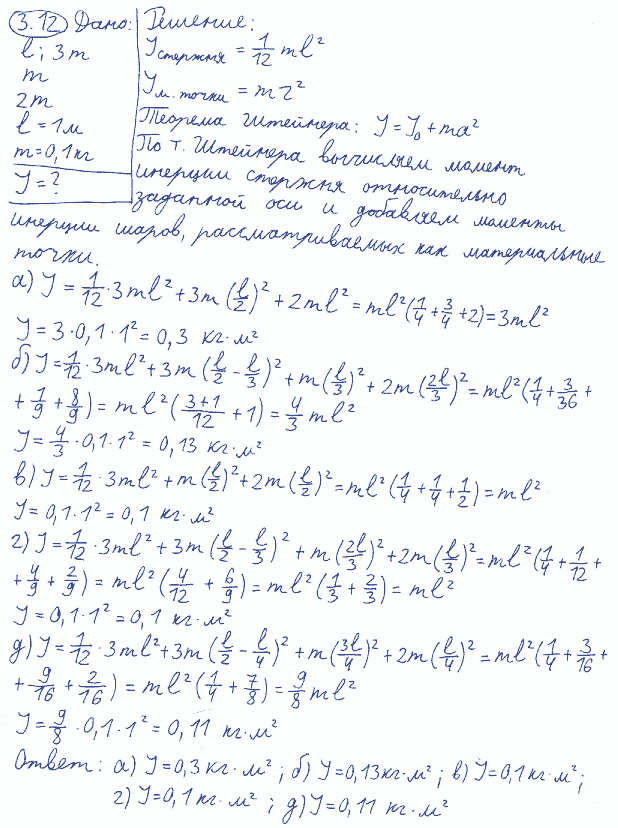 3.12 Дано: Решение:
l; 3m
m
2m
l = 1м
m = 0,1 кг
J = ?
J стержня = 1/12 ml²
J м. точки = mr²
Теорема Штейнера: J = J₀ + ma²
По т. Штейнера вычисляем момент
инерции стержня относительно
заданной оси и добавляем моменты
инерции шаров, рассматриваемых как материальные
точки.
а) J = 1/12 · 3ml² + 3m (l/2)² + 2ml² = ml² (1/4 + 3/4 + 2) = 3ml²
J = 3 · 0,1 · 1² = 0,3 кг · м²
б) J = 1/12 · 3ml² + 3m (l/2 - l/3)² + m (l/3)² + 2m (2l/3)² = ml² (1/4 + 3/36 +
+ 1/9 + 8/9) = ml² (3+1/12 + 1) = 4/3 ml²
J = 4/3 · 0,1 · 1² = 0,13 кг · м²
в) J = 1/12 · 3ml² + m (l/2)² + 2m (l/2)² = ml² (1/4 + 1/4 + 1/2) = ml²
J = 0,1 · 1² = 0,1 кг · м²
г) J = 1/12 · 3ml² + 3m (l/2 - l/3)² + m (2l/3)² + 2m (l/3)² = ml² (1/4 + 1/12 +
+ 4/9 + 2/9) = ml² (4/12 + 6/9) = ml² (1/3 + 2/3) = ml²
J = 0,1 · 1² = 0,1 кг · м²
д) J = 1/12 · 3ml² + 3m (l/2 - l/4)² + m (3l/4)² + 2m (l/4)² = ml² (1/4 + 3/16 +
+ 9/16 + 2/16) = ml² (1/4 + 7/8) = 9/8 ml²
J = 9/8 · 0,1 · 1² = 0,11 кг · м²
Ответ: а) J = 0,3 кг · м²; б) J = 0,13 кг · м²; в) J = 0,1 кг · м²;
г) J = 0,1 кг · м²; д) J = 0,11 кг · м²